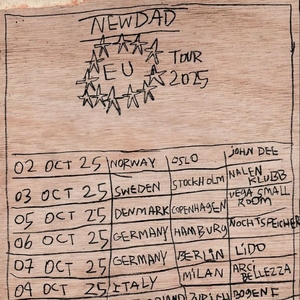 NEWDAD
EU
TOUR
2025
02 OCT 25 NORWAY OSLO JOHN DEE
03 OCT 25 SWEDEN STOCKHOLM NALEN KLUBB
05 OCT 25 DENMARK COPENHAGEN VEGA SMALL ROOM
06 OCT 25 GERMANY HAMBURG NOCHTSPEICHER
07 OCT 25 GERMANY BERLIN LIDO
09 OCT 25 ITALY MILAN ARCI BELLEZZA
ZURICH BOGENF